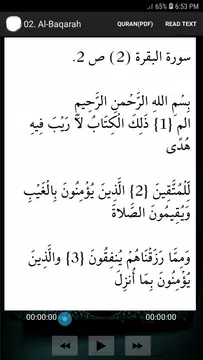 6:53 PM
02. Al-Baqarah QURAN(PDF) READ TEXT
سورة البقرة (2) ص 2.
بِسْمِ اللهِ الرَّحْمنِ الرَّحِيمِ
الم {1} ذَلِكَ الْكِتَابُ لاَ رَيْبَ فِيهِ
هُدًى
لِّلْمُتَّقِينَ {2} الَّذِينَ يُؤْمِنُونَ بِالْغَيْبِ
وَيُقِيمُونَ الصَّلاةَ
وَمِمَّا رَزَقْنَاهُمْ يُنفِقُونَ {3} والَّذِينَ
يُؤْمِنُونَ بِمَا أُنزِلَ
00:00:00 00:00:00